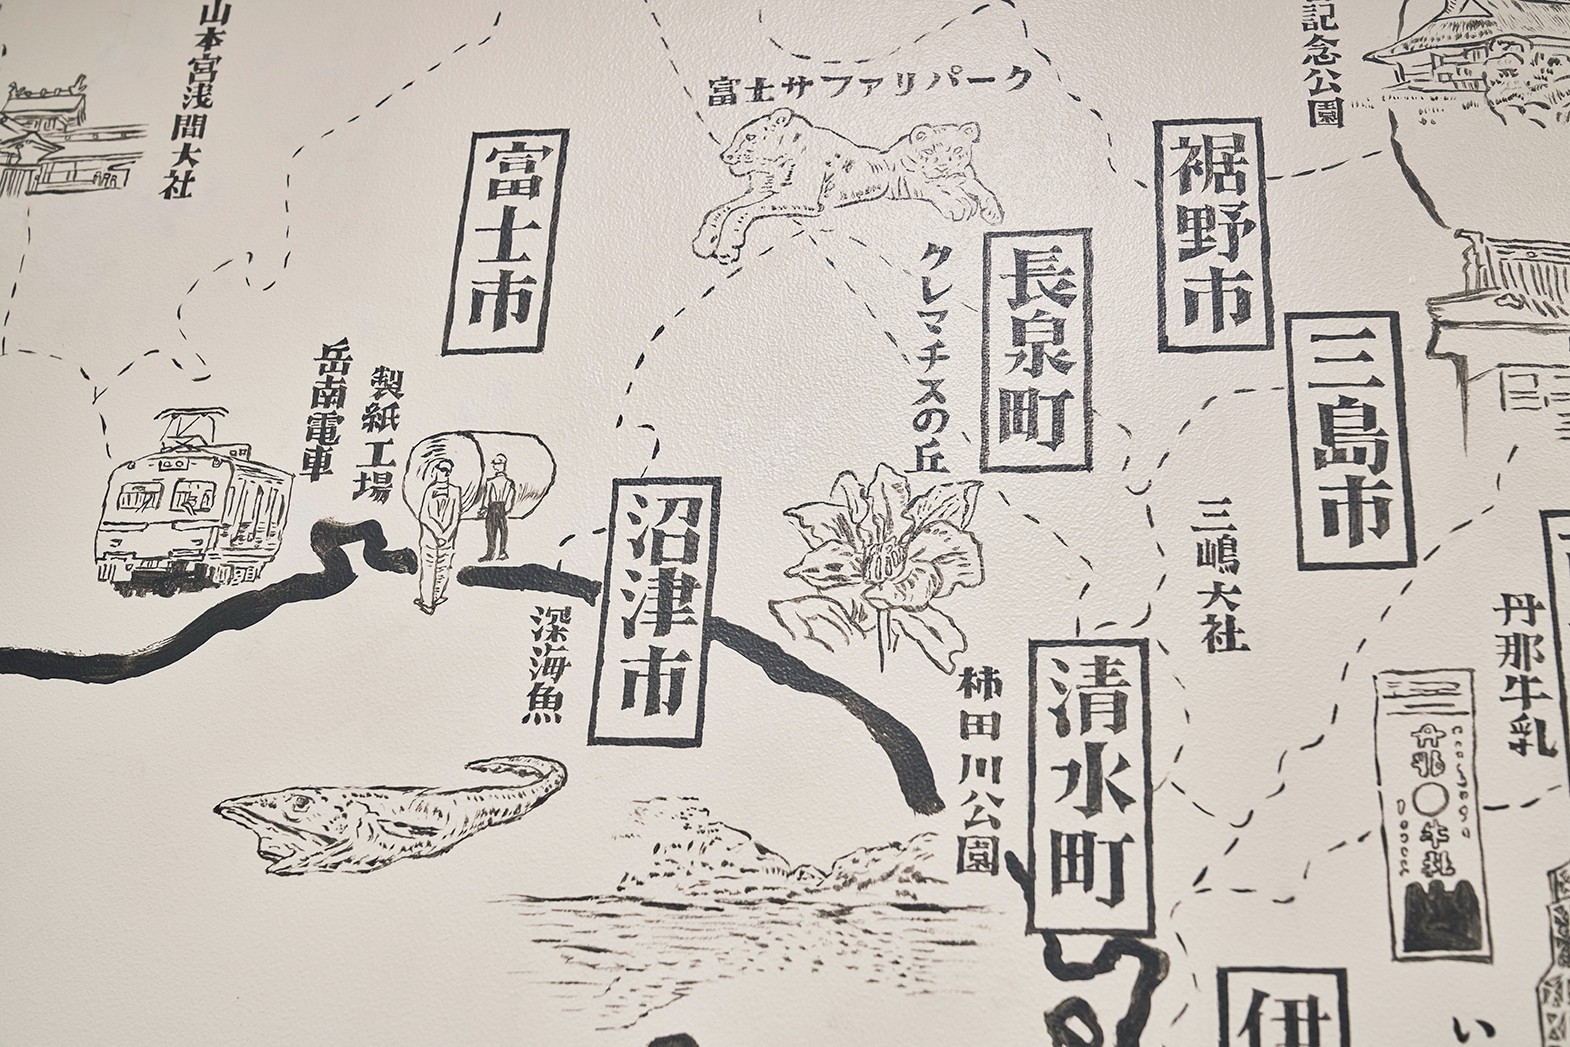 山本宮浅間大社
富士サファリパーク
記念公園
富士市
裾野市
長泉町
クレマチスの丘
三島市
岳南電車
製紙工場
沼津市
三嶋大社
深海魚
丹那牛乳
清水町
柿田川公園
丹那
牛乳
伊
い